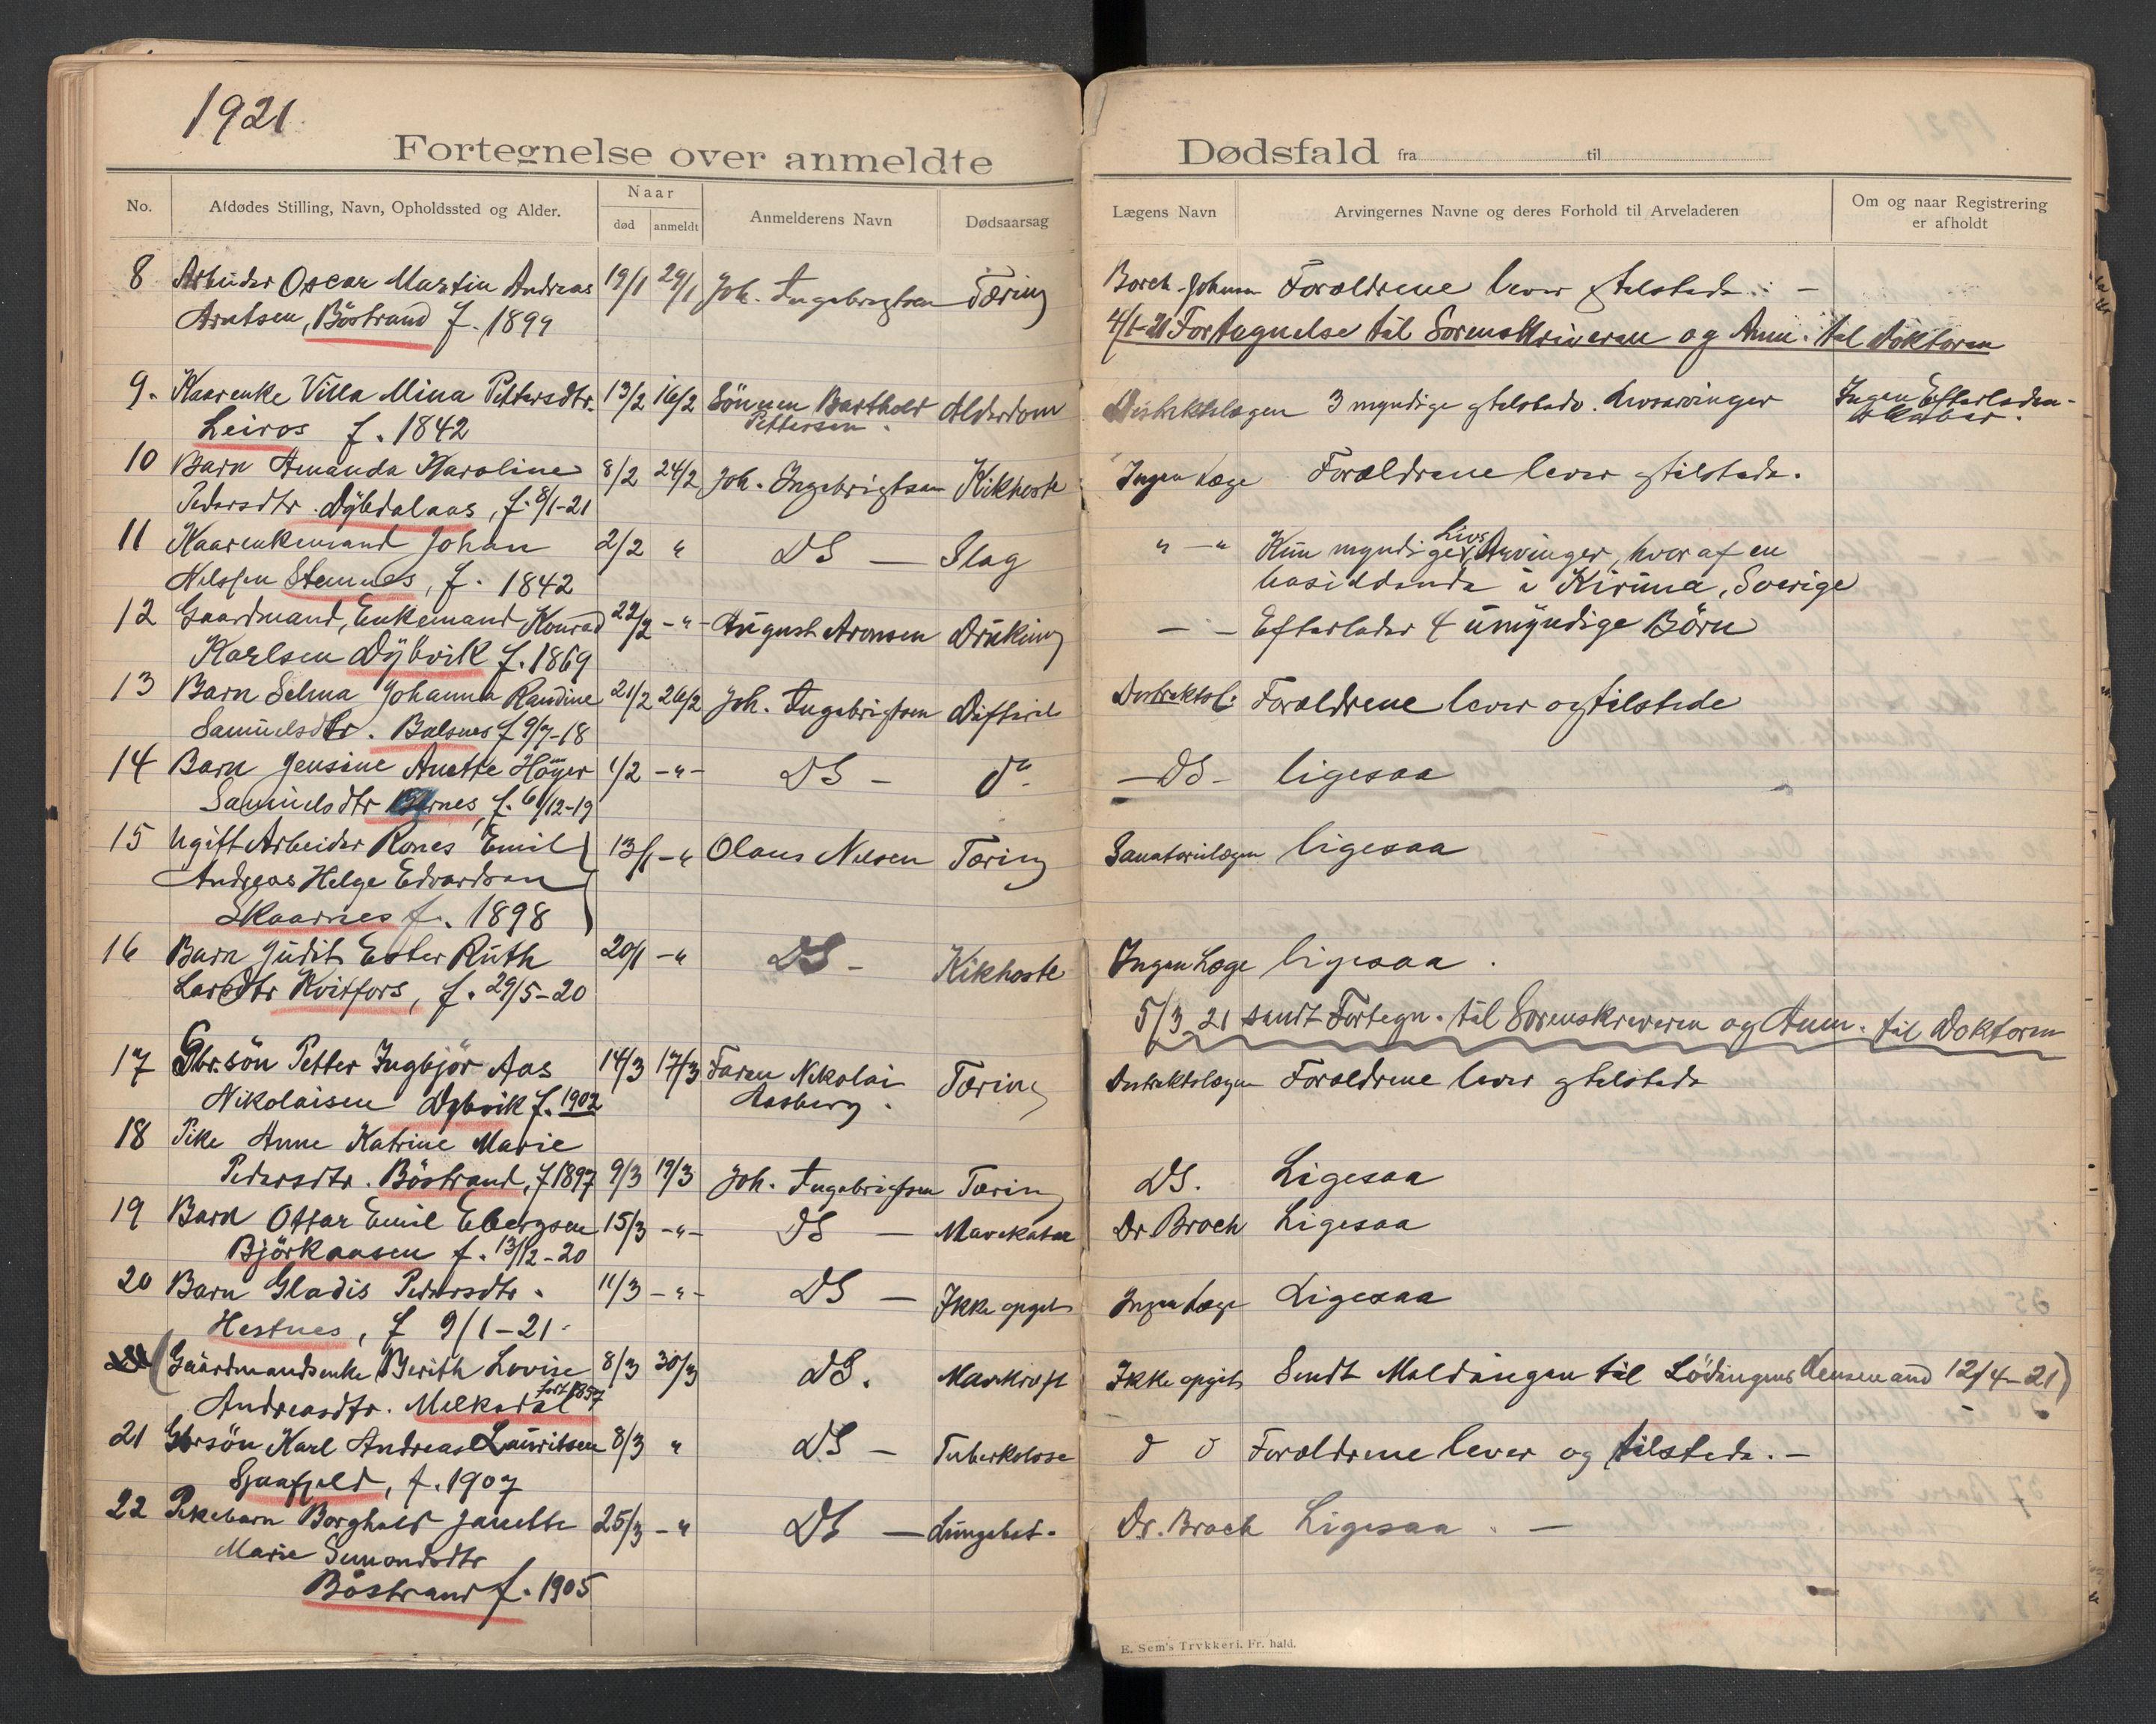 1921
Fortegnelse over anmeldte Dødsfald fra til
No. Afdødes Stilling, Navn, Opholdssted og Alder. Naar død anmeldt Anmelderens Navn Dødsaarsag Lægens Navn Arvingernes Navne og deres Forhold til Arveladeren Om og naar Registrering er afholdt
8 Arbeider Oscar Martin Andreas 19/1 29/1 Joh. Ingebrigtsen Tæring Borch-Johnsen Forældrene lever gtilstede. -
Arntsen, Böstrand f. 1899 4/1-21 Fortegnelse til Sorenskriveren og Anm. til Doktoren
9. Kaarenke Villa Mina Pettersdtr. 13/2 16/2 Sönnen Barthold Alderdom Distriktslægen 3 myndige gtilstedv. Livsarvinger Ingen Efterladen-
Leiros f. 1842 Pettersen. skaber.
10 Barn Amanda Karoline 8/2 24/2 Joh. Ingebrigtsen Kikhoste Ingen Læge Forældrene lever gtilstede.
Pedersdtr. Dybdalaas, f. 8/1-21
11 Kaarenkemand Johan 2/2 " DS — Slag " - " Kun myndige Livs Arvinger, hvoraf en
Nilssen Stennes, f. 1842 bosiddende i Kiruna, Sverige
12 Gaardmand, Enkemand Konrad 22/2 - " - August Aronsen Drukning — - Efterlader 4 umyndige Börn
Karlsen Dybvik f. 1869
13 Barn Selma Johanna Randine 21/2 26/2 Joh. Ingebrigtsen Difteri Distriktsl: Forældrene lever og tilstede
Samuelsdtr. Balsnes f 9/7-18
14 Barn Jensine Anette Höyer 1/2 - " - DS - d° - DS - ligesaa
Samuelsdtr f. 6/12-19
15 Ugift Arbeider Rones Emil 13/1 - " Olaus Nilsen Tæring Sanatorielægen ligesaa
Andreas Helge Edvardsen
Skaarnes f. 1898
16 Barn Judit Ester Ruth 20/1 - " DS - Kikhoste Ingen Læge ligesaa.
Larsdtr Kvitfors, f. 29/5-20
5/3 21 sendt Fortegn. til Sorenskriveren og Anm. til Doktoren
17 Gbr.sön Petter Ingbjör Aas 14/3 17/3 Faren Nikolai Tæring Distriktslægen Forældrene lever gtilstede
Nikolaisen Dybvik f. 1902 Aasberg.
18 Pike Anne Katrine Marie
Pedersdtr. Böstrand, f 1897 9/3 19/3 Joh. Ingebrigtsen Tæring DS. Ligesaa
19 Barn Ottar Emil Ebergsen 15/3 - " - DS — Mavekatar Dr Broch Ligesaa
Björkaasen f. 13/12-20
20 Barn Gladis Pedersdtr. 11/3 - " - DS — Ikke opgit Ingen Læge Ligesaa
Hestnes, f 9/1-21
(Gaardmandsenke Berith Lovise 8/3 30/3 DS. Mavekræft Ikke opgit Sendt Meldingen til Lödingens Lensmand 12/4-21)
Andreasdtr. Melkedal född 1857
21 Gbrsön Karl Andreas Lauritsen 8/3 " DS - Tuberkolose d o Forældrene lever og tilstede. -
Sjaafjeld, f. 1907
22 Pikebarn Borghild Janette 25/3 - " DS — Lungebet. Dr. Broch Ligesaa. —
Marie Simonsdtr
Böstrand f. 1905
E. Sem's Trykkeri. Fr. hald.